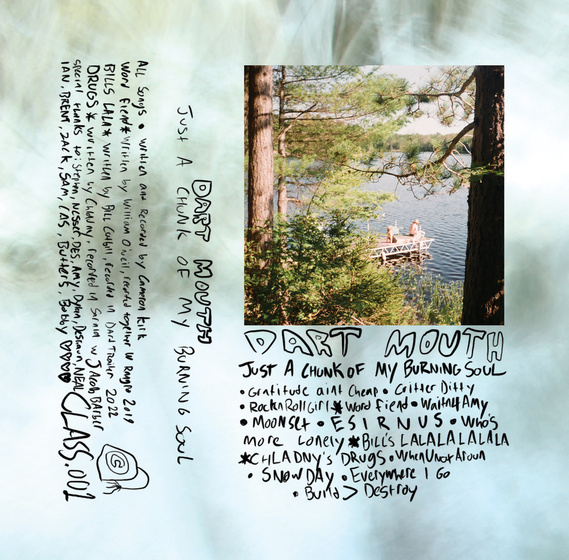 DART MOUTH
JUST A CHUNK OF MY BURNING SOUL
• Gratitude aint Cheap • Critter Ditty
• RocknRollGirl * Word Fiend • Waitn4Amy
• MOONSet • ESIRNUS • Who's
more Lonely * Bill's LALALALALALA
* CHLADNY'S DRUGS • WhenUNotAroun
• SNOW DAY • Everywhere I Go
• Build > Destroy
DART MOUTH
JUST A CHUNK OF MY BURNING SOUL
All Songs • written and Recorded by Cameron
Word Fiend * written by William O'Neill, recorded together W 2019
BILLS LALA * written by Bill, recorded in Dard Trailer 2022
DRUGS * written by Chladny, recorded in Sarnia w Jakob Barber
special thanks to: DES, Amy, Dylan, NEAL
IAN, BRENT, ZACK, SAM, TAS, Butters, Bobby
CLASS.001